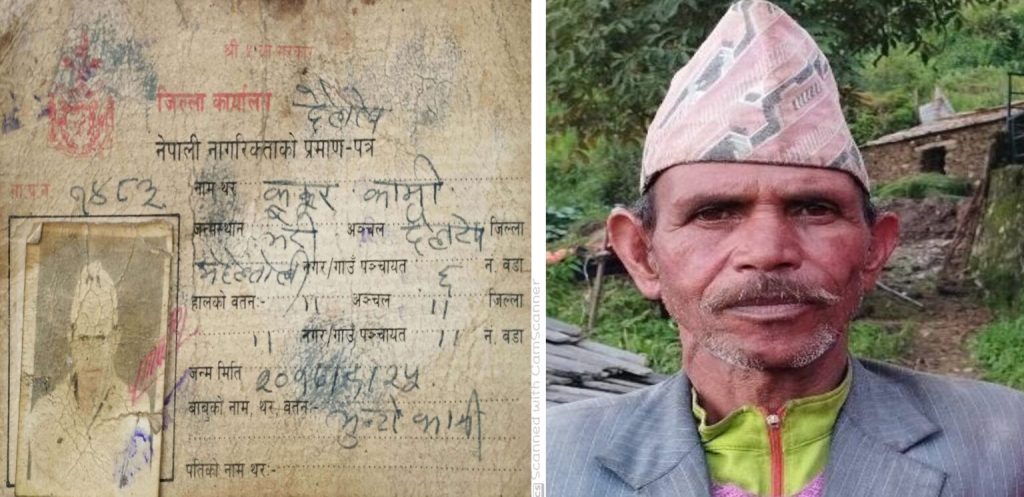 श्री ५ को सरकार
जिल्ला कार्यालय दैलेख
नेपाली नागरिकताको प्रमाण-पत्र
ना.प्र.नं. १४८३
नाम थर कामी
जन्मस्थान भेरी अञ्चल दैलेख जिल्ला
नगर/गाउँ पञ्चायत ६ नं. वडा
हालको वतन:- " अञ्चल " जिल्ला
" नगर/गाउँ पञ्चायत " नं. वडा
जन्म मिति
बाबुको नाम, थर, वतन:- कामी
पतिको नाम थर:-
Scanned with CamScanner